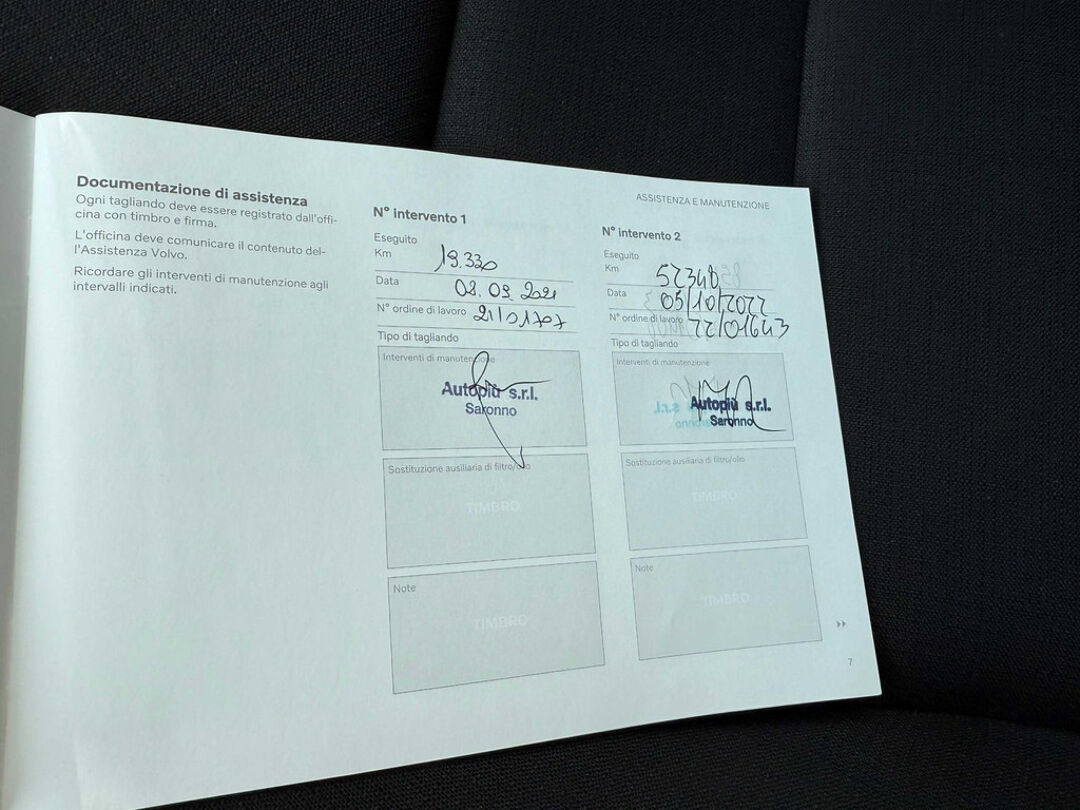 Documentazione di assistenza
Ogni tagliando deve essere registrato dall'offi-
cina con timbro e firma.
L'officina deve comunicare il contenuto del-
l'Assistenza Volvo.
Ricordare gli interventi di manutenzione agli
intervalli indicati.
N° intervento 1
Eseguito
Km 19.330
Data 02.09.2021
N° ordine di lavoro 21/01707
Tipo di tagliando
Interventi di manutenzione
Autopiù s.r.l.
Saronno
Sostituzione ausiliaria di filtro/olio
TIMBRO
Note
TIMBRO
ASSISTENZA E MANUTENZIONE
N° intervento 2
Eseguito
Km 52348
Data 05/10/2022
N° ordine di lavoro 22/01643
Tipo di tagliando
Interventi di manutenzione
Autopiù s.r.l.
Saronno
Sostituzione ausiliaria di filtro/olio
TIMBRO
Note
TIMBRO
7